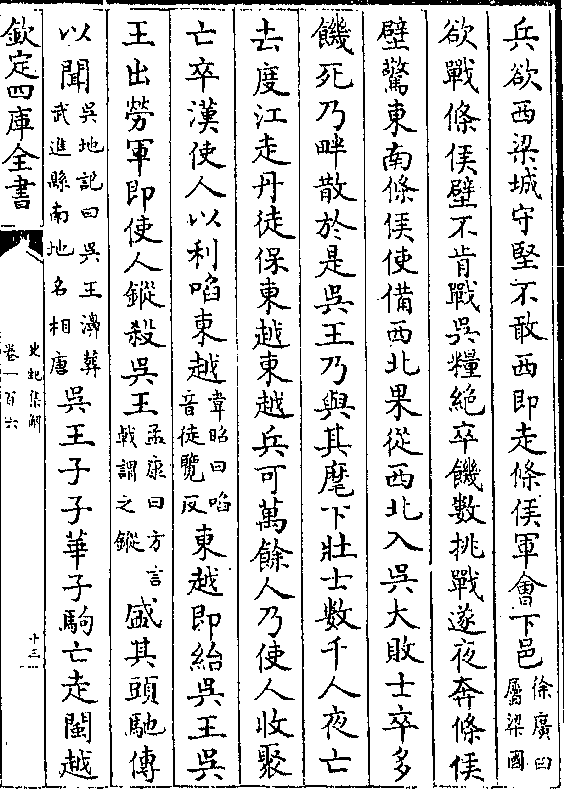 兵欲西梁城守堅不敢西即走條侯軍會下邑徐廣曰屬梁國
欲戰條侯壁不肯戰吳糧絶卒饑數挑戰遂夜奔條侯
壁驚東南條侯使備西北果從西北入吳大敗士卒多
饑死乃畔散於是吳王乃與其麾下壯士數千人夜亡
去度江走丹徒保東越東越兵可萬餘人乃使人收聚
亡卒漢使人以利啗東越韋昭曰啗音徒覽反東越即紿吳王吳
王出勞軍即使人鏦殺吳王孟康曰方言戟謂之鏦盛其頭馳傳
以聞吳地記曰吳王濞葬武進縣南地名相唐吳王子子華子駒亡走閩越
欽定四庫全書
史記集解
卷一百六
十三